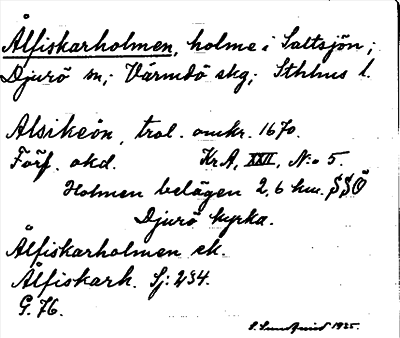 Ålfiskarholmen, holme i Saltsjön;
Djurö sn; Värmdö skg; Sthlms l.
Alsikeön, trol. omkr. 1670.
Förf. okd. KrA, XXII, N:o 5.
Holmen belägen 2,6 km. SSÖ
Djurö kyrka.
Ålfiskarholmen ek.
Ålfiskarh. Sj: 234.
G. 76.
1925.